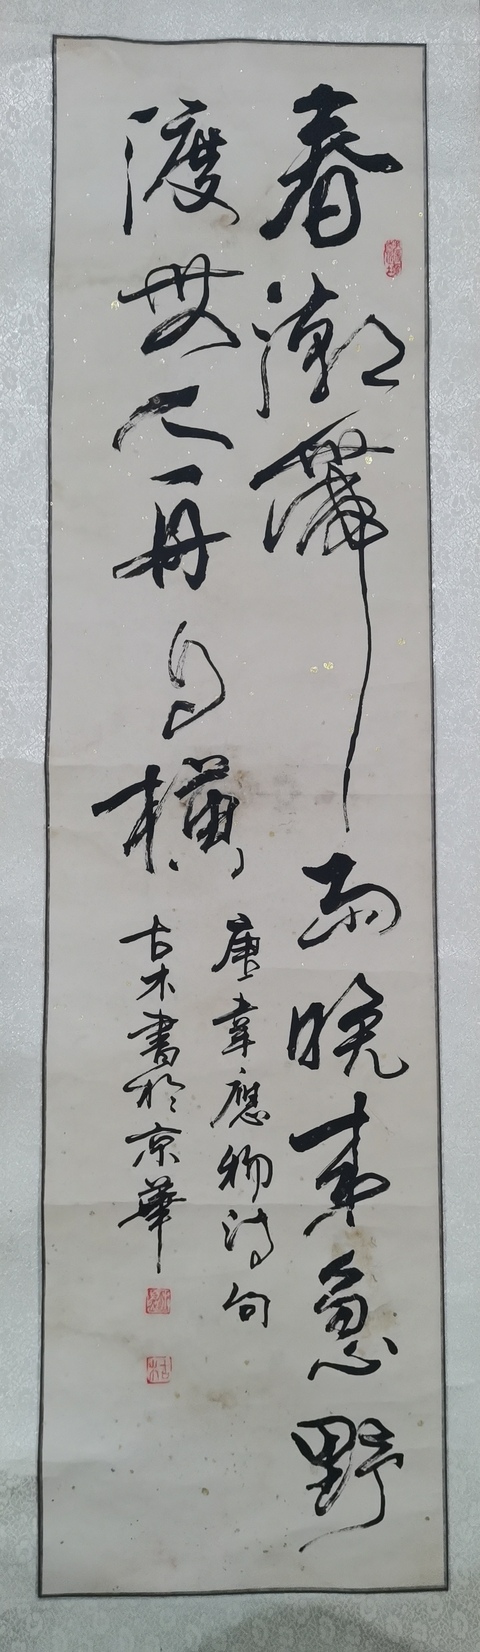 春潮帶雨晚來急野
渡無人舟自橫
唐韋應物詩句
古木書於京華
古木